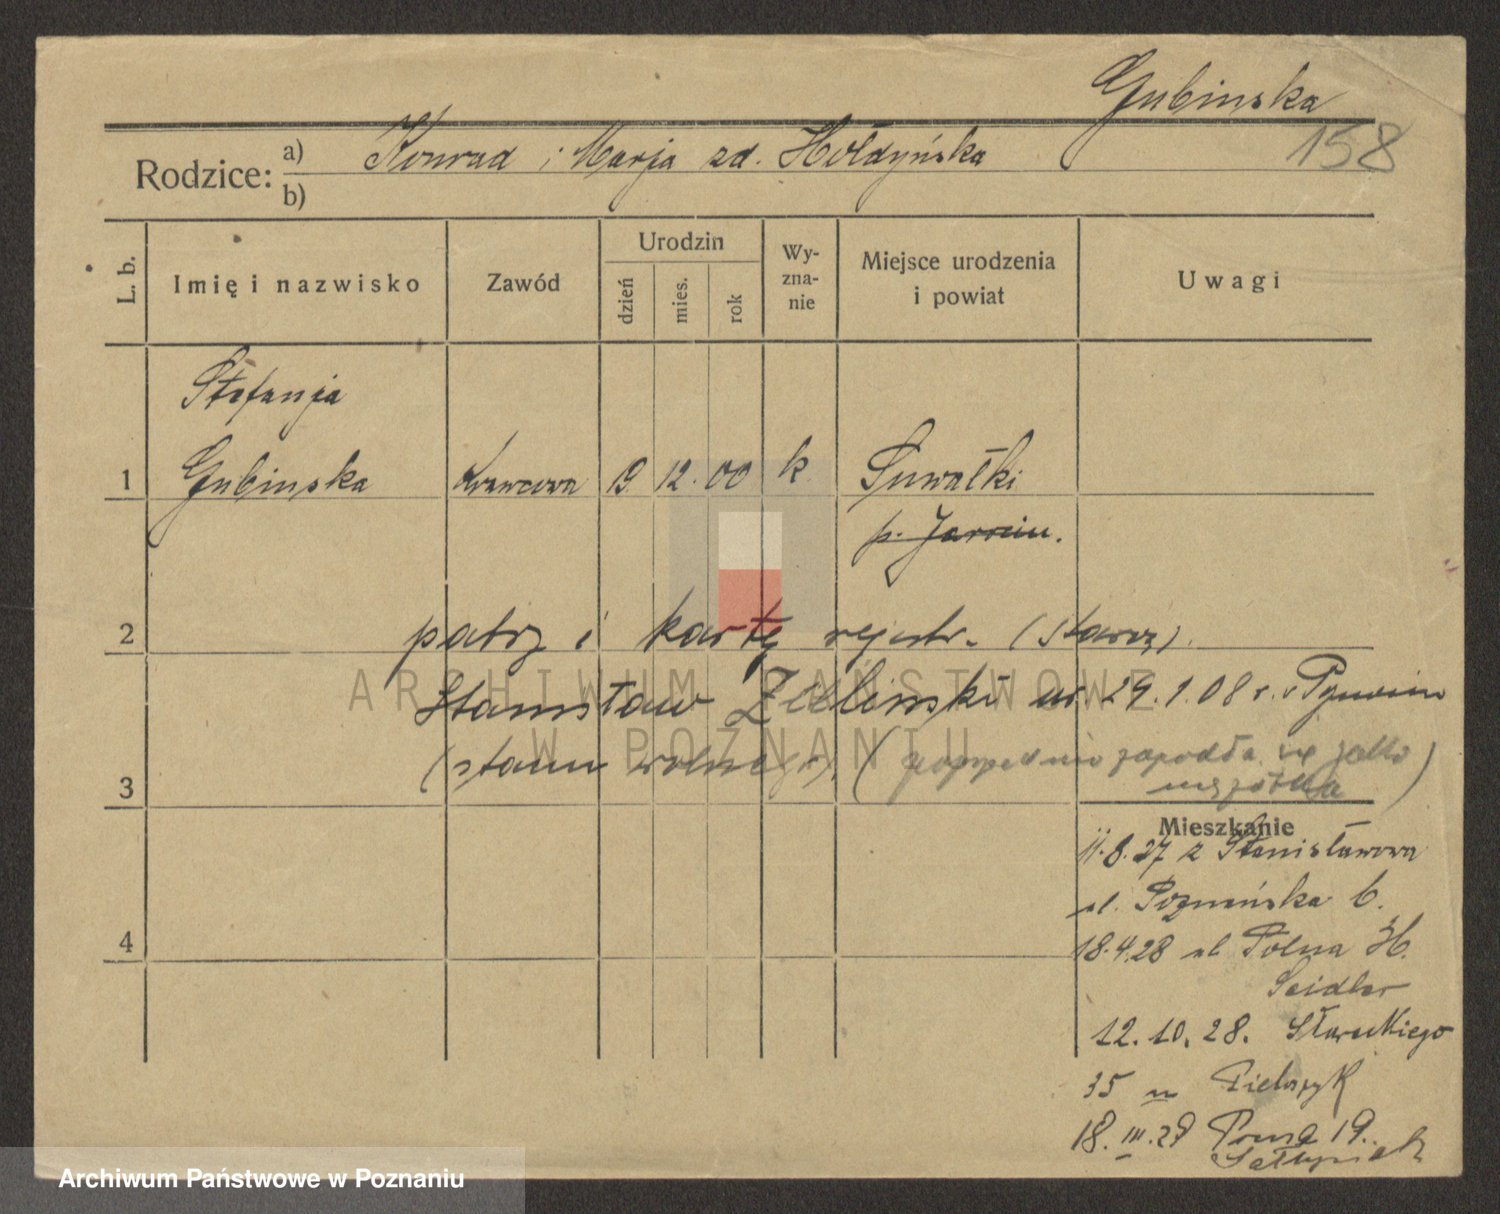 Gubinska
158
Rodzice:
a) Konrad i Marja zd. Hołdyńska
b)
L. b.
Imię i nazwisko
Zawód
Urodzin
dzień
mies.
rok
Wy-
zna-
nie
Miejsce urodzenia
i powiat
Uwagi
Stefanja
1 Gubinska Krawcowa 19 12. 00 k Suwałki
p. Jarocin.
2 patrz i kartę rejestr. (starszą).
Stanisław Zieliński ur 29.1.08 r.
(stanu wolnego). (poprzednio zapodała się jako
mężatka)
3
Mieszkanie
11.8.27 z Stanisławowa
ul. Poznańska 6.
4
18.4.28 ul Polna
Seidler
12.10.28.
35
18.III.29 19.
ARCHIWUM PAŃSTWOWE
W POZNANIU
Archiwum Państwowe w Poznaniu